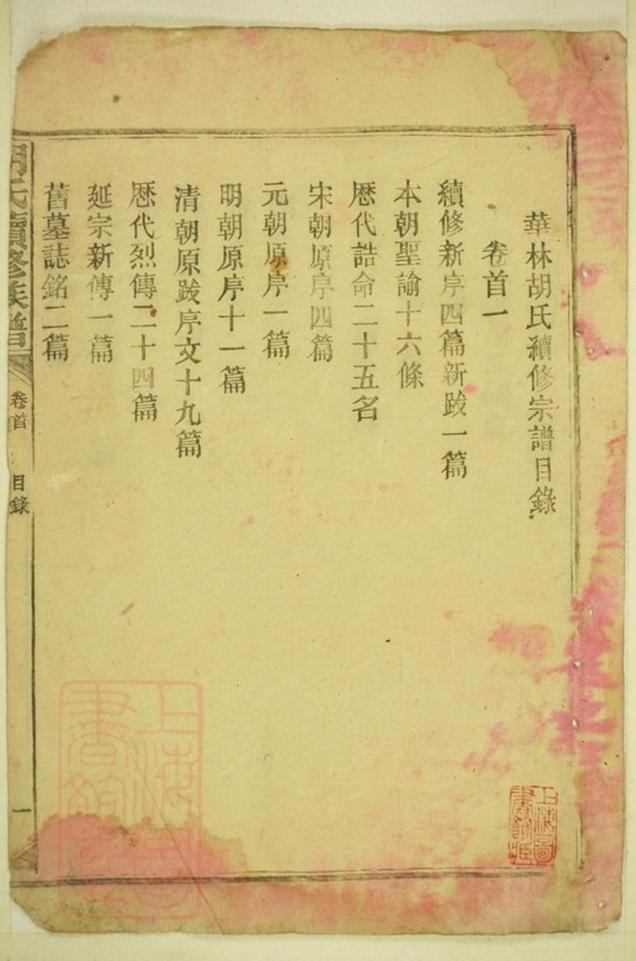 華林胡氏續修宗譜目錄
卷首一
續修新序四篇新跋一篇
本朝聖諭十六條
歷代誥命二十五名
宋朝原序四篇
元朝原序一篇
明朝原序十一篇
清朝原跋序文十九篇
歷代烈傳二十四篇
延宗新傳一篇
舊墓誌銘二篇
胡氏續修族譜
卷首
目錄
一
上海圖
書館藏